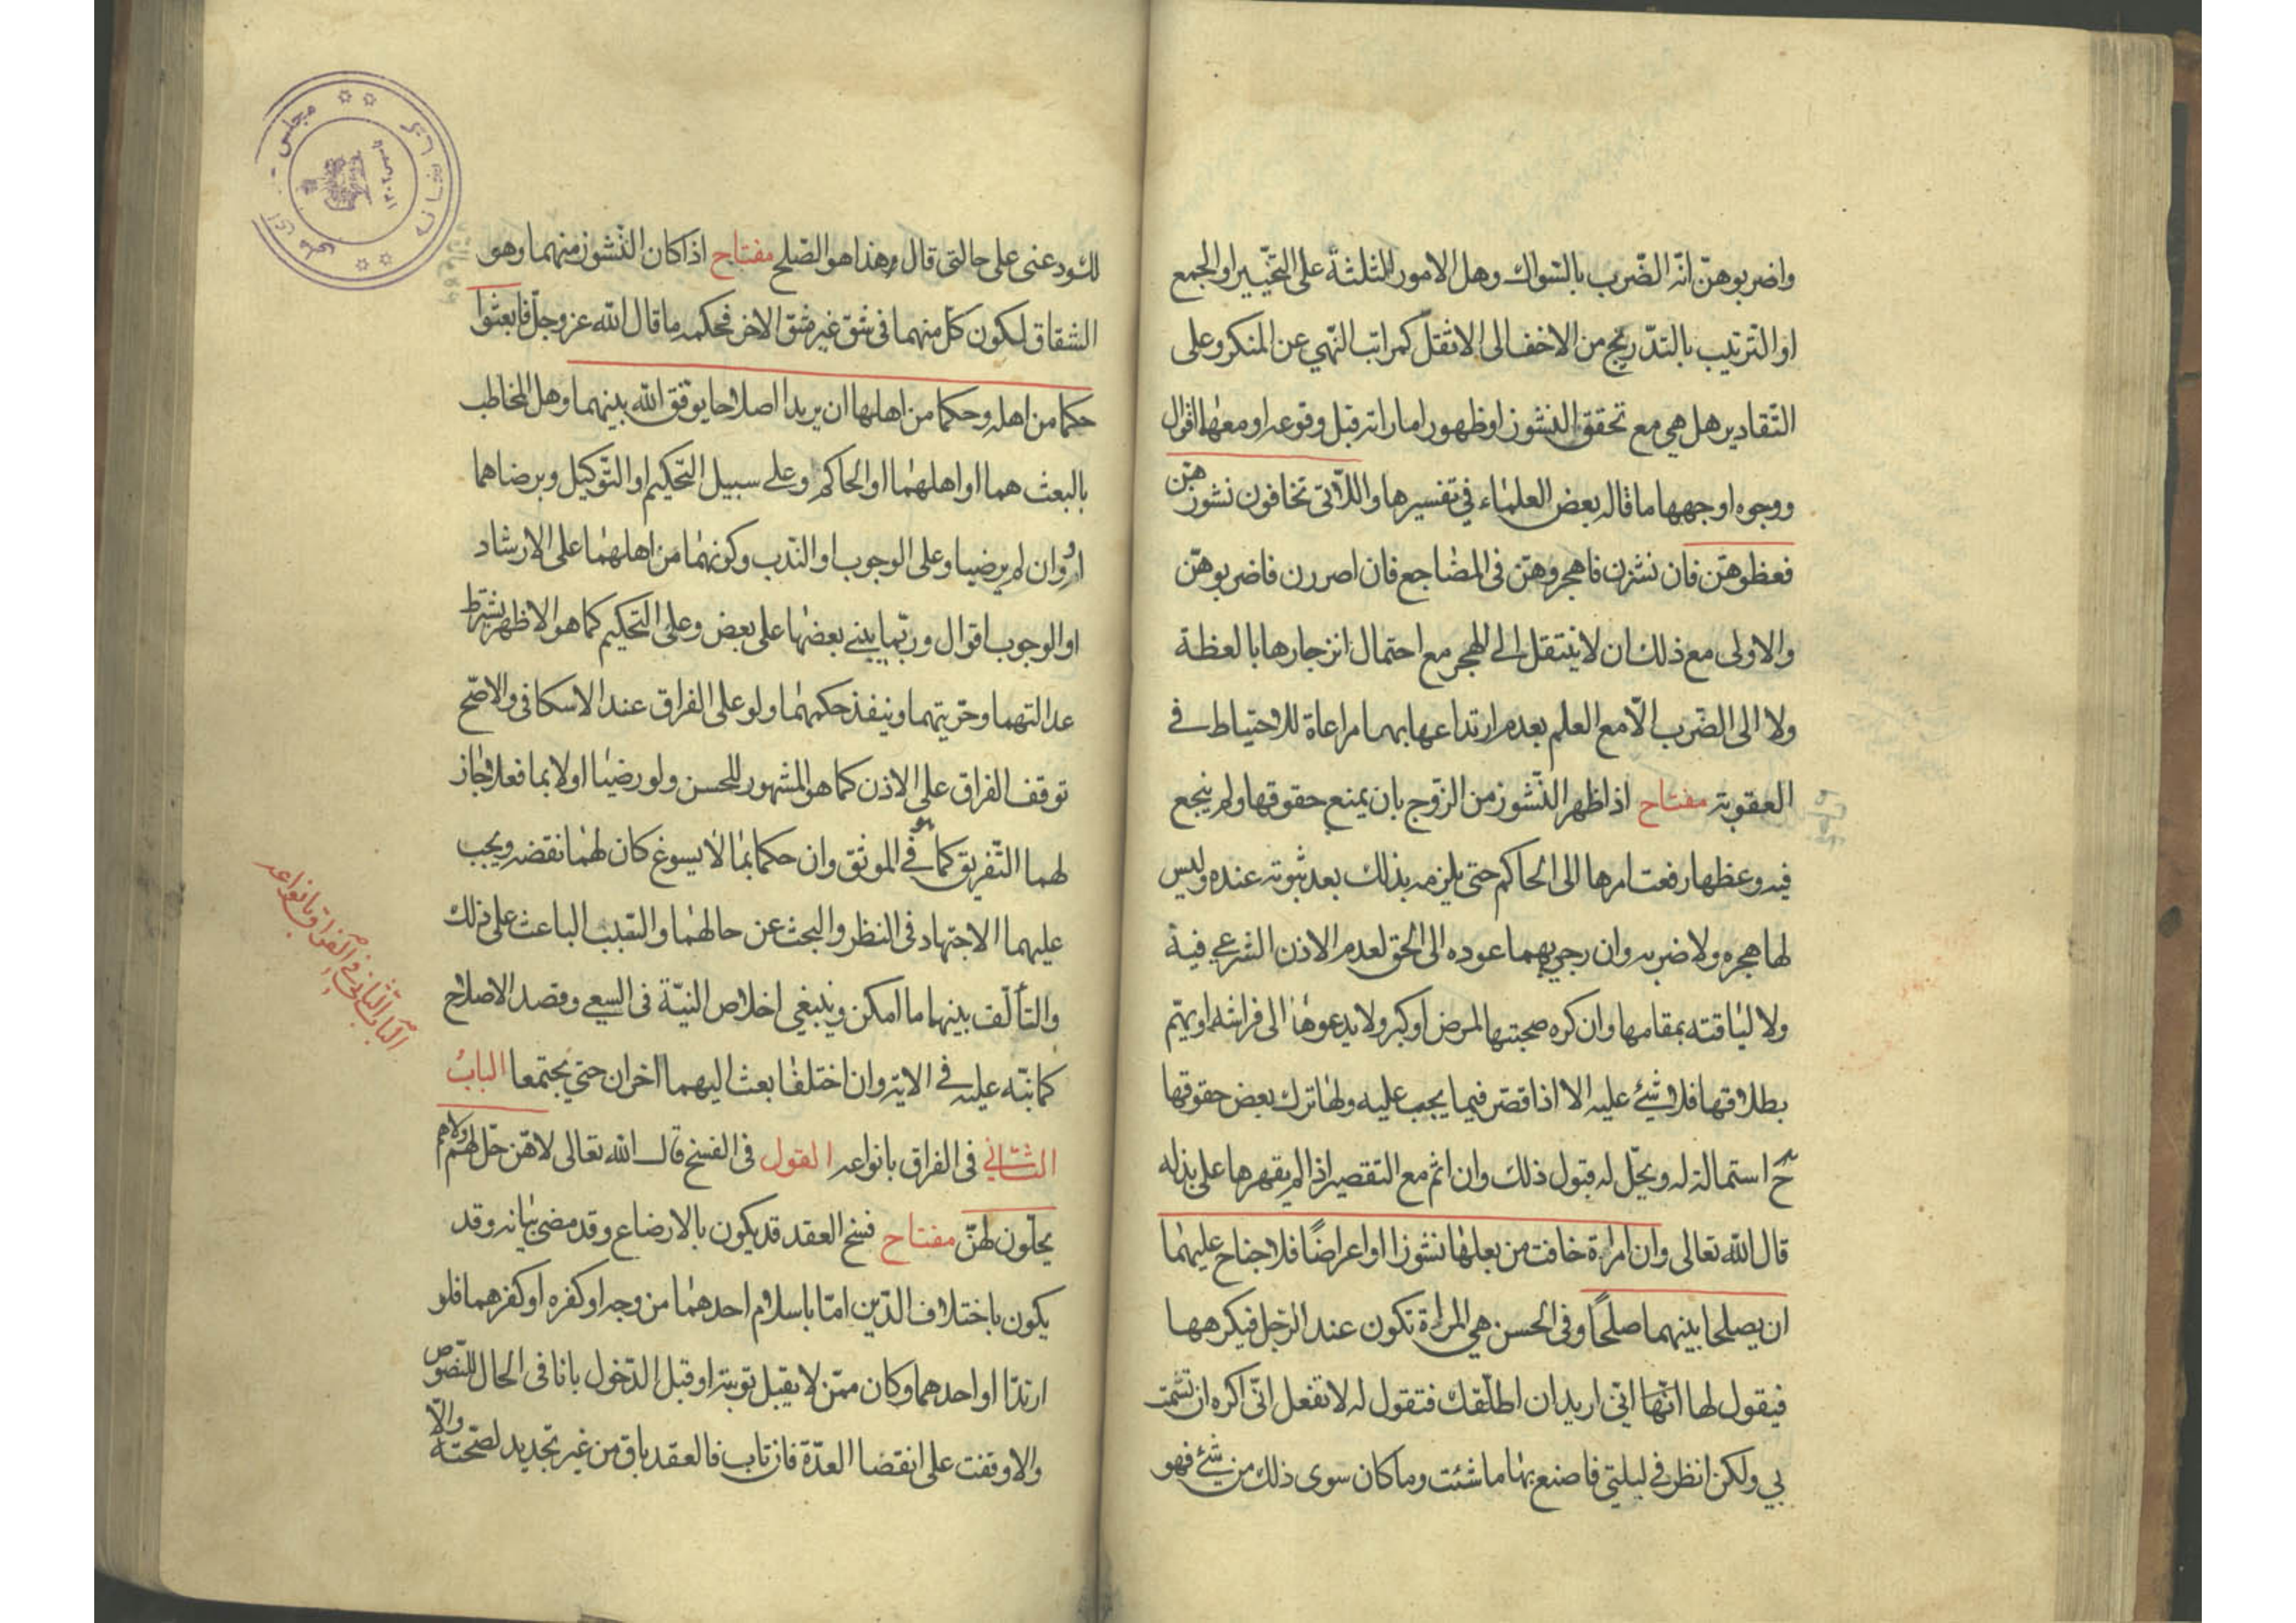 واضربوهن انه الضرب بالسواك وهل الامور الثلثة على التخيير او الجمع
او الترتيب بالتدريج من الاخف الى الاثقل كمراتب النهي عن المنكر وعلى
التقادير هل هي مع تحقق النشوز او ظهور اماراته قبل وقوعه او معها اقوال
ووجوه اوجهها ما قاله بعض العلماء في تفسيرها واللاتى تخافون نشوزهن
فعظوهن فان نشزن فاهجروهن فى المضاجع فان اصررن فاضربوهن
والاولى مع ذلك ان لا ينتقل الى الهجر مع احتمال انزجارها بالعظة
ولا الى الضرب الا مع العلم بعدم ارتداعها بهما مراعاة للاحتياط في
العقوبة مفتاح اذا ظهر النشوز من الزوج بان يمنع حقوقها ولم ينجع
فيه وعظها رفعت امرها الى الحاكم حتى يلزمه بذلك بعد ثبوته عنده وليس
لها هجره ولا ضربه وان رجى بهما عوده الى الحق لعدم الاذن الشرعي فيه
ولا لياقته بمقامها وان كره صحبتها لمرض او كبر ولا يدعوها الى فراشه او يهم
بطلاقها فلا شئ عليه الا اذا قصر فيما يجب عليه ولها ترك بعض حقوقها
ح استمالة له ويحل له قبول ذلك وان اثم مع التقصير اذا لم يقهرها على بذله
قال الله تعالى وان امراة خافت من بعلها نشوزا او اعراضًا فلا جناح عليهما
ان يصلحا بينهما صلحًا وفى الحسن هي المراة تكون عند الرجل فيكرهها
فيقول لها انى اريد ان اطلقك فتقول له لا تفعل انى اكره ان تشمت
بي ولكن انظر في ليلتي فاصنع بها ما شئت وما كان سوى ذلك من شئ فهو
لك ودعنى على حالتى قال وهذا هو الصلح مفتاح اذا كان النشوز منهما وهو
الشقاق لكون كل منهما فى شق غير شق الاخر فحكمه ما قال الله عز وجل فابعثوا
حكما من اهله وحكما من اهلها ان يريدا اصلاحا يوفق الله بينهما وهل المخاطب
بالبعث هما او اهلهما او الحاكم وعلى سبيل التحكيم او التوكيل وبرضاهما
او وان لم يرضيا وعلى الوجوب او الندب وكونهما من اهلهما على الارشاد
او الوجوب اقوال وربما يبنى بعضها على بعض وعلى التحكيم كما هو الاظهر يشترط
عدالتهما وحريتهما وينفذ حكمهما ولو على الفراق عند الاسكافى والاصح
توقف الفراق على الاذن كما هو المشهور للحسن ولو رضيا اولا بما فعلا جاز
لهما التفريق كما هو في الموثق وان حكما بما لا يسوغ كان لهما نقضه ويجب
عليهما الاجتهاد فى النظر والبحث عن حالهما والسبب الباعث على ذلك
والتألف بينهما ما امكن وينبغي اخلاص النية فى السعي وقصد الاصلاح
كما نبّه عليه في الاية وان اختلفا بعث اليهما اخران حتى يجتمعا الباب
الثاني فى الفراق بانواعه القول فى الفسخ قال الله تعالى لا هن حل لهم ولا هم
يحلون لهن مفتاح فسخ العقد قد يكون بالارضاع وقد مضى بيانه وقد
يكون باختلاف الدين اما باسلام احدهما من وجه او كفره او كفرهما فلو
ارتدا او احدهما وكان ممن لا يقبل توبته او قبل الدخول بانا فى الحال للنصوص
والا وقفت على انقضا العدة فان تاب فالعقد باق من غير تجديد لصحته والا
الباب الثانى فى الفراق بانواعه
مجلس شوراى ملى